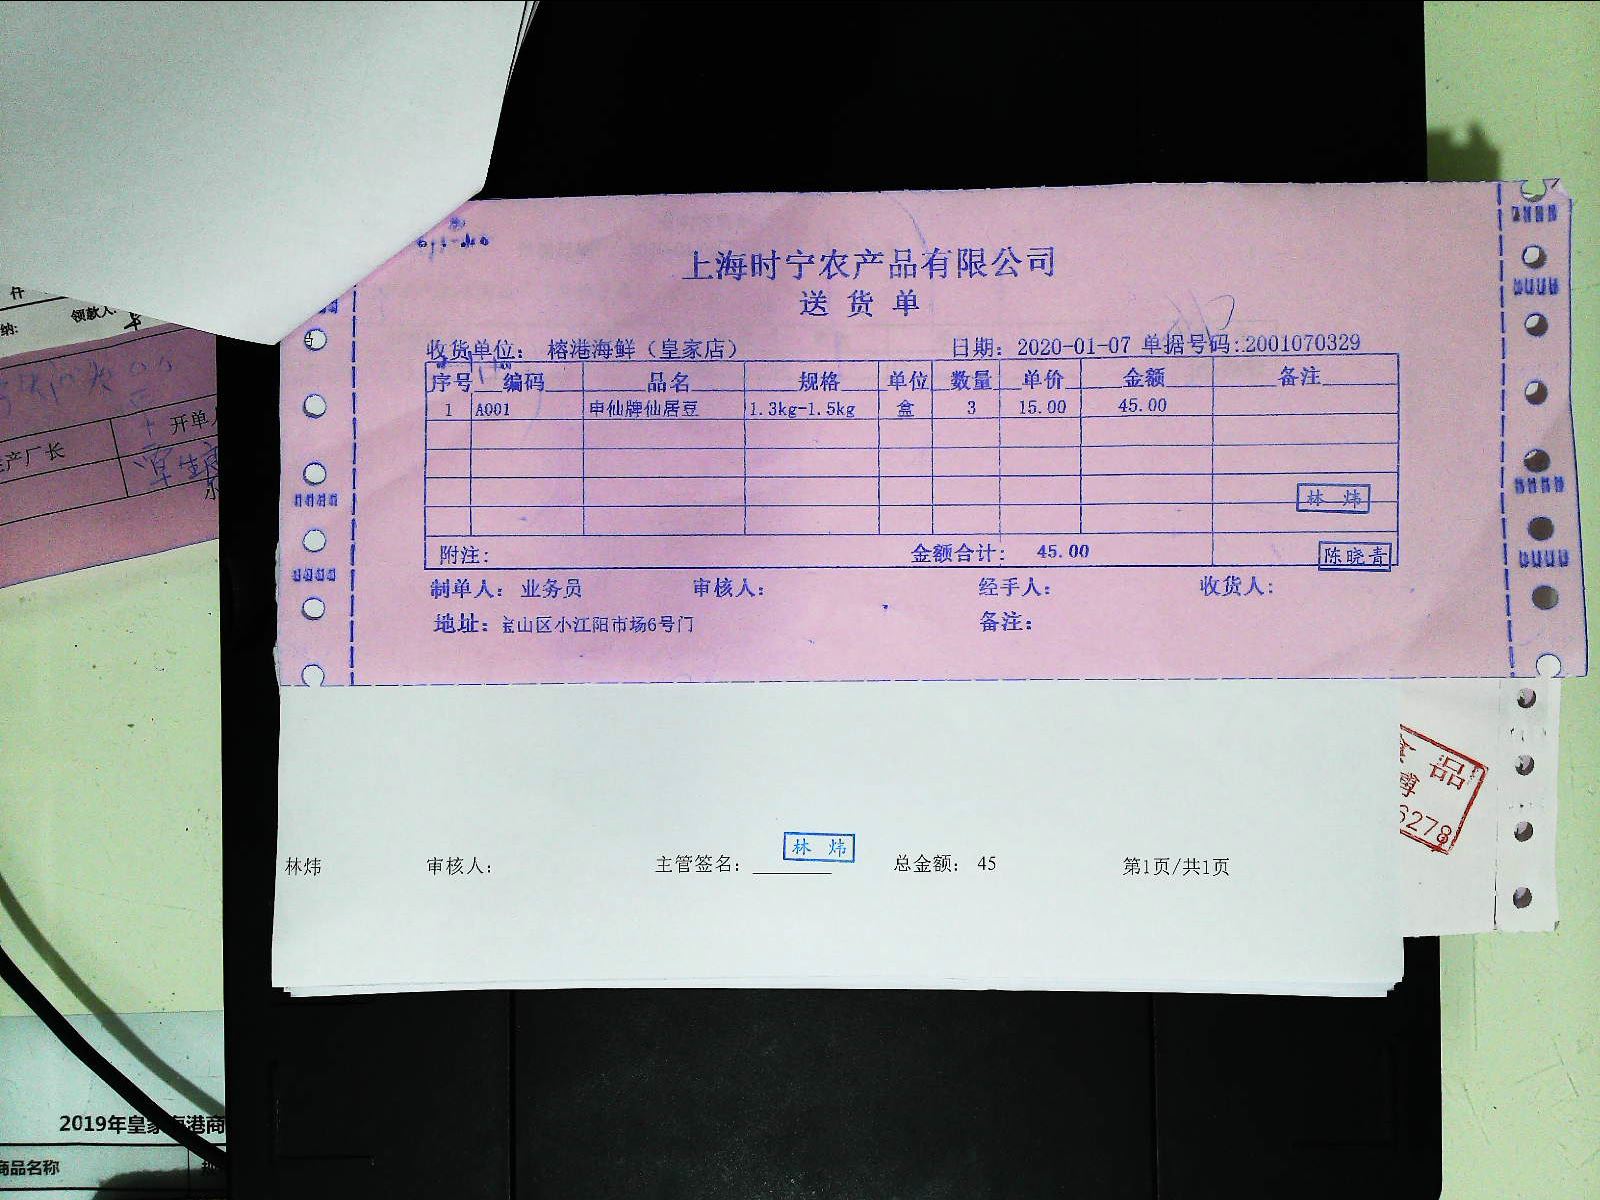 上海时宁农产品有限公司
送 货 单
收货单位: 榕港海鲜（皇家店） 日期: 2020-01-07 单据号码:2001070329
序号 编码 品名 规格 单位 数量 单价 金额 备注
1 A001 申仙牌仙居豆 1.3kg-1.5kg 盒 3 15.00 45.00
林 炜
附注: 金额合计: 45.00 陈晓青
制单人: 业务员 审核人: 经手人: 收货人:
地址: 宝山区小江阳市场6号门 备注:
林炜 审核人: 主管签名: 林 炜 总金额: 45 第1页/共1页
品
6278
件
纳: 领款人:
开单人
产厂长
2019年皇家海港商
商品名称